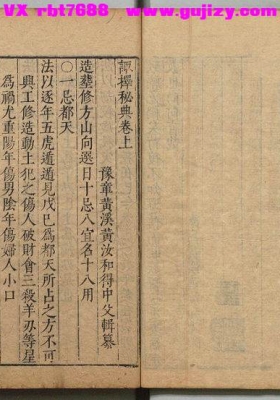 VX rbt7688
www.gujizy.com
諏擇秘典卷上
豫章黃溪黃汝和得中父輯纂
造塟修方山向選日十忌八宜名十八用
○一忌都天
法以逐年五虎遁遁見戊巳為都天所占之方不可
興工修造動土犯之傷人破財會三殺羊刃等星
為禍尤重陽年傷男陰年傷婦人小口